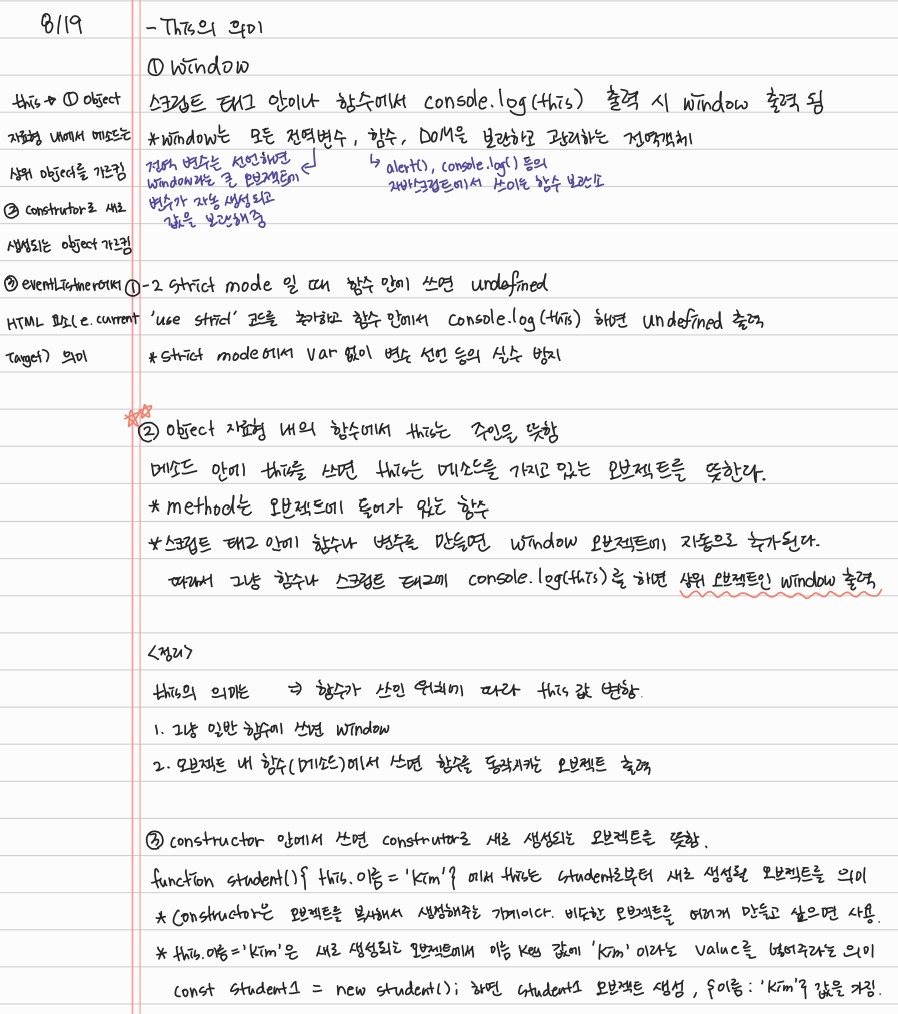 8/19
- This의 의미
① Window
스크립트 태그 안이나 함수에서 console.log(this) 출력 시 window 출력 됨
*window는 모든 전역변수, 함수, DOM을 보관하고 관리하는 전역객체
전역 변수는 선언하면
window라는 큰 오브젝트에
변수가 자동 생성되고
값을 보관해줌
alert(), console.log() 등의
자바스크립트에서 쓰이는 함수 보관소
this → ① Object
자료형 내에서 메소드는
상위 Object를 가르킴
② construtor로 새로
생성되는 object 가르킴
③ eventListner에서
HTML 요소(e.current
Target) 의미
①-2 strict mode 일 때 함수 안에 쓰면 undefined
'use strict' 코드를 추가하고 함수 안에서 console.log(this) 하면 undefined 출력
*strict mode에서 var 없이 변수 선언 등의 실수 방지
② Object 자료형 내의 함수에서 this는 주인을 뜻함
메소드 안에 this를 쓰면 this는 메소드를 가지고 있는 오브젝트를 뜻한다.
*method는 오브젝트에 들어가 있는 함수
*스크립트 태그 안에 함수나 변수를 만들면 window 오브젝트에 자동으로 추가된다.
따라서 그냥 함수나 스크립트 태그에 console.log(this)를 하면 상위 오브젝트인 window 출력
<정리>
this의 의미는 ⇒ 함수가 쓰인 위치에 따라 this 값 변함.
1. 그냥 일반 함수에 쓰면 window
2. 오브젝트 내 함수(메소드)에서 쓰면 함수를 동작시키는 오브젝트 출력
③ constructor 안에서 쓰면 construtor로 새로 생성되는 오브젝트를 뜻함.
function student(){ this.이름 = 'Kim'} 에서 this는 student로부터 새로 생성될 오브젝트를 의미
* Constructor은 오브젝트를 복사해서 생성해주는 기계이다. 비슷한 오브젝트를 여러개 만들고 싶으면 사용.
* this.이름='Kim'은 새로 생성되는 오브젝트에서 이름 key 값에 'Kim' 이라는 value를 넣어주라는 의미
const student1 = new student(); 하면 student1 오브젝트 생성, {이름: 'Kim'} 값을 가짐.